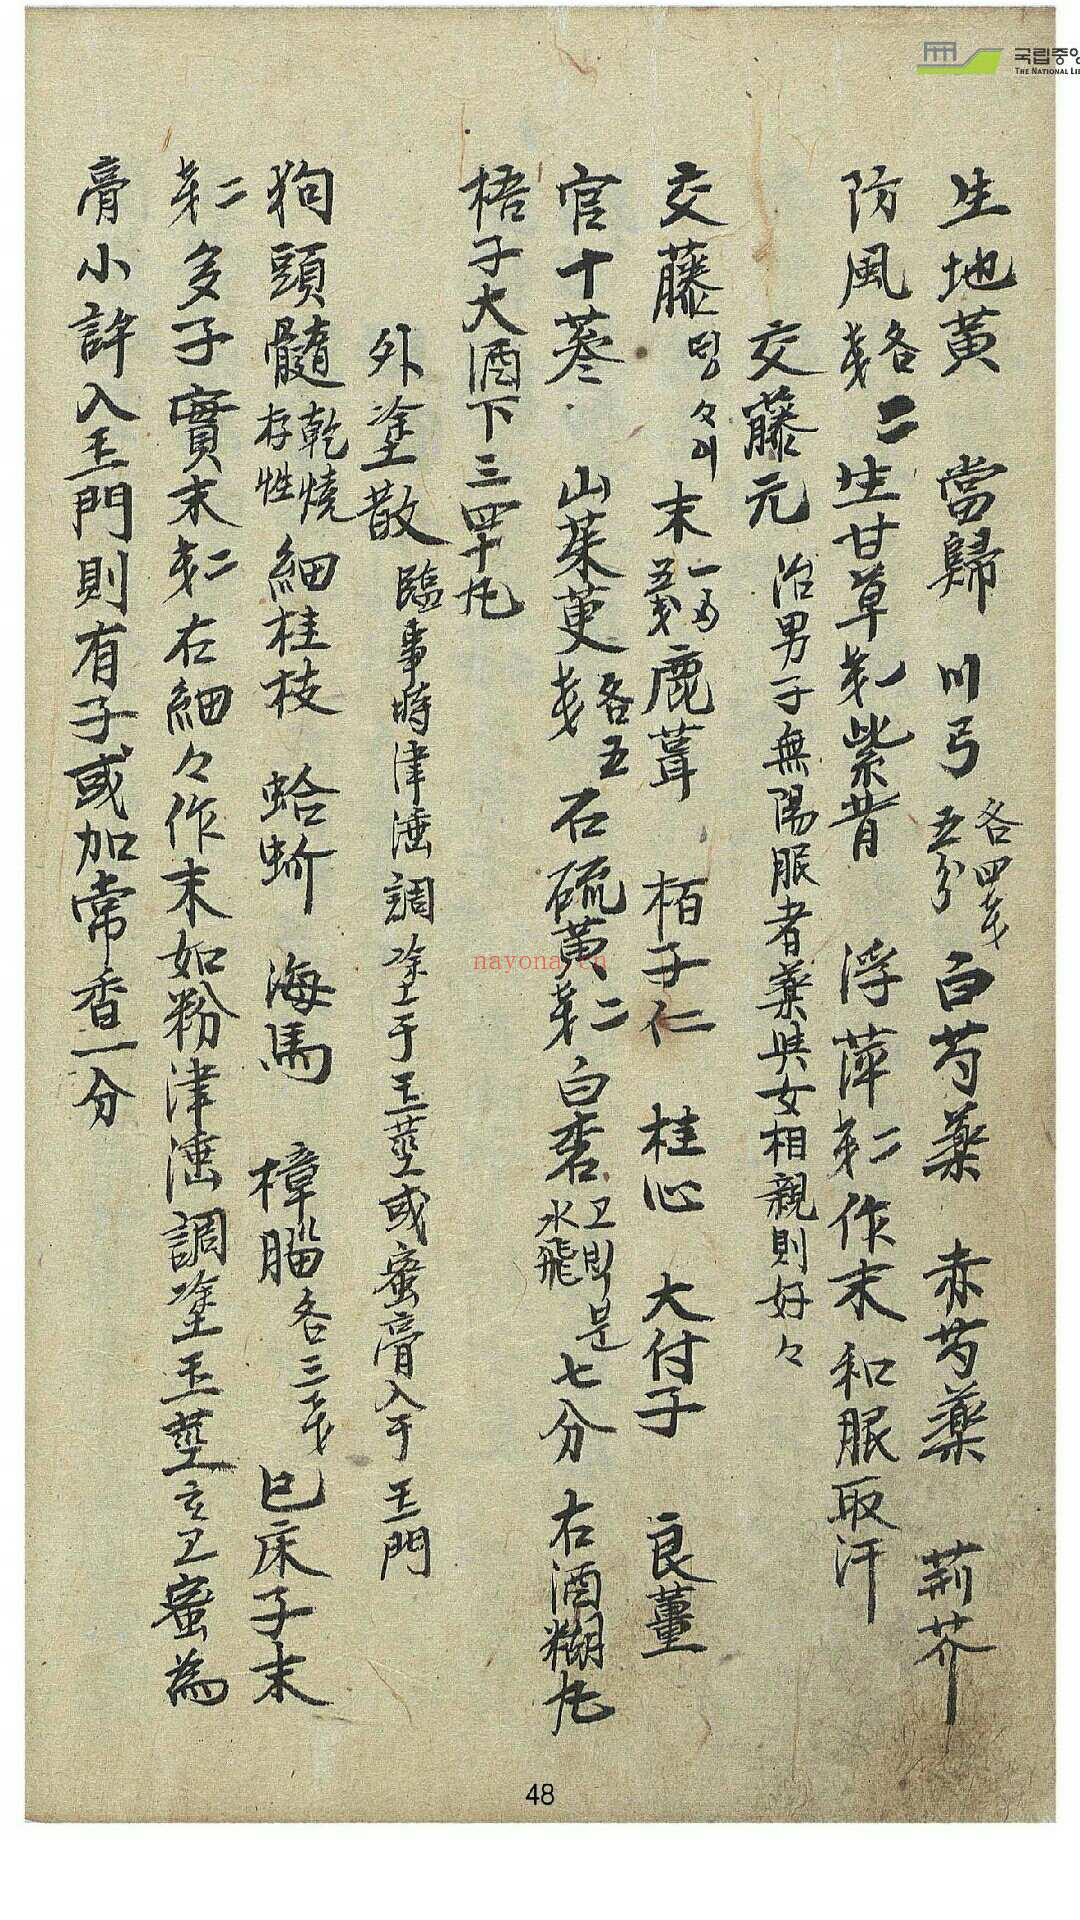 국립중앙
THE NATIONAL LIB
生地黃 當歸 川弓 各四戔五分 白芍藥 赤芍藥 荊芥
防風 各二戔 生甘草 戔 紫背浮萍 戔二 作末和服取汗
交藤元 治男子無陽服者藥與女相親則好々
交藤 末 五戔 鹿茸 栢子仁 桂心 大付子 良薑
官十蔘 山茱萸 各五戔 石硫黃 戔二 白 水飛 七分 右酒糊丸
梧子大酒下三四十丸
外塗散 臨事時津唾調塗于玉莖或蜜膏入于玉門
狗頭髓 乾燒存性 細桂枝 蛤蚧 海馬 樟腦 各三戔 巳床子末
戔二 多子實末 戔二 右細々作末如粉津唾調塗玉莖 蜜為
膏小許入玉門則有子或加常香一分
nayona.cn
48